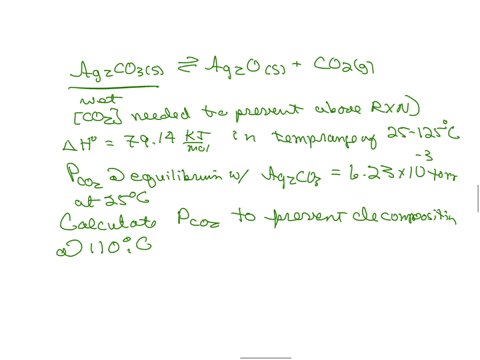 Ag2CO3(s) ⇌ Ag2O(s) + CO2(g)
wat
[CO2] needed to prevent above RXN)
ΔH° = 79.14 KJ/mol in temp range of 25-125°C
PCO2 @ equilibrium w/ Ag2CO3 = 6.23 x 10^-3 torr
at 25°C
Calculate PCO2 to prevent decomposition
@ 110°C